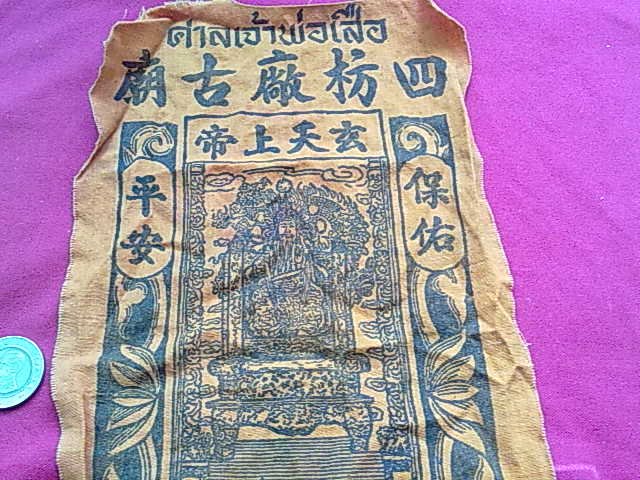 ศาลเจ้าพ่อเสือ
四枋廠古廟
玄天上帝
保佑
平安